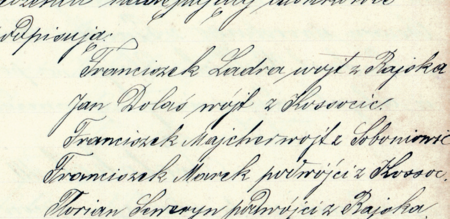 podpisują:
Franciszek Ladra wójt z Rajska
Jan Dolaś wójt z Kossocic.
Franciszek Majcher wójt z Soboniowic
Franciszek Marek podwójci z Kossoc.
Florian Seweryn podwójci z Rajska